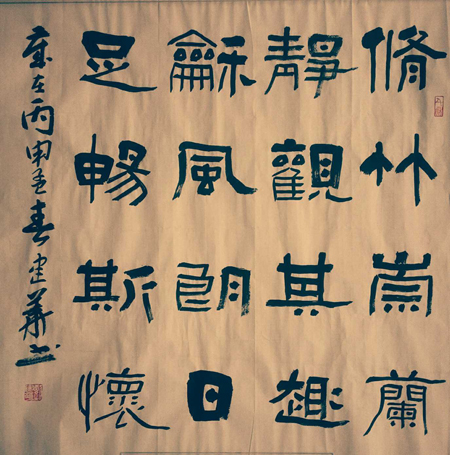 脩竹崇蘭
靜觀其趣
龢風朗日
足暢斯懷
歲在丙申孟春建華書